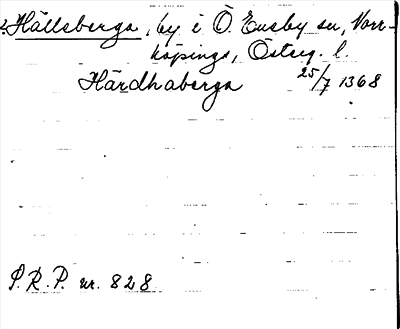 2. Hällsberga, by i Ö. Eneby sn, Norr-
köpings, Österg. l.
Härdhaberga 25/7 1368
S. R. P. nr. 828